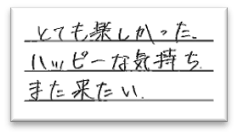 とても楽しかった.
ハッピーな気持ち
また来たい.